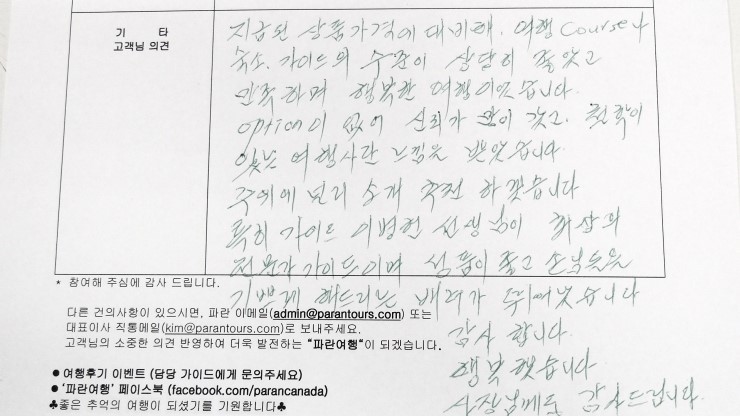 기 타
고객님 의견
지급된 상품가격에 대비해, 여행 Course나
숙소, 가이드의 수준이 상당히 좋았고
만족하며 행복한 여행이었습니다.
option이 없어 신뢰가 많이 갔고, 철학이
있는 여행사란 느낌을 받았습니다.
주위에 널리 소개 추천 하겠습니다
특히 가이드 이병헌 선생님이 최상의
전문가 가이드이며 성품이 좋고 손님들을
기쁘게 해드리는 배려가 뛰어났습니다
감사 합니다.
행복했습니다
사장님께도 감사드립니다.
* 참여해 주심에 감사 드립니다.
다른 건의사항이 있으시면, 파란 이메일(admin@parantours.com) 또는
대표이사 직통메일(kim@parantours.com)로 보내주세요.
고객님의 소중한 의견 반영하여 더욱 발전하는 "파란여행"이 되겠습니다.
● 여행후기 이벤트 (담당 가이드에게 문의주세요)
● '파란여행' 페이스북 (facebook.com/parancanada)
♣좋은 추억의 여행이 되셨기를 기원합니다♣